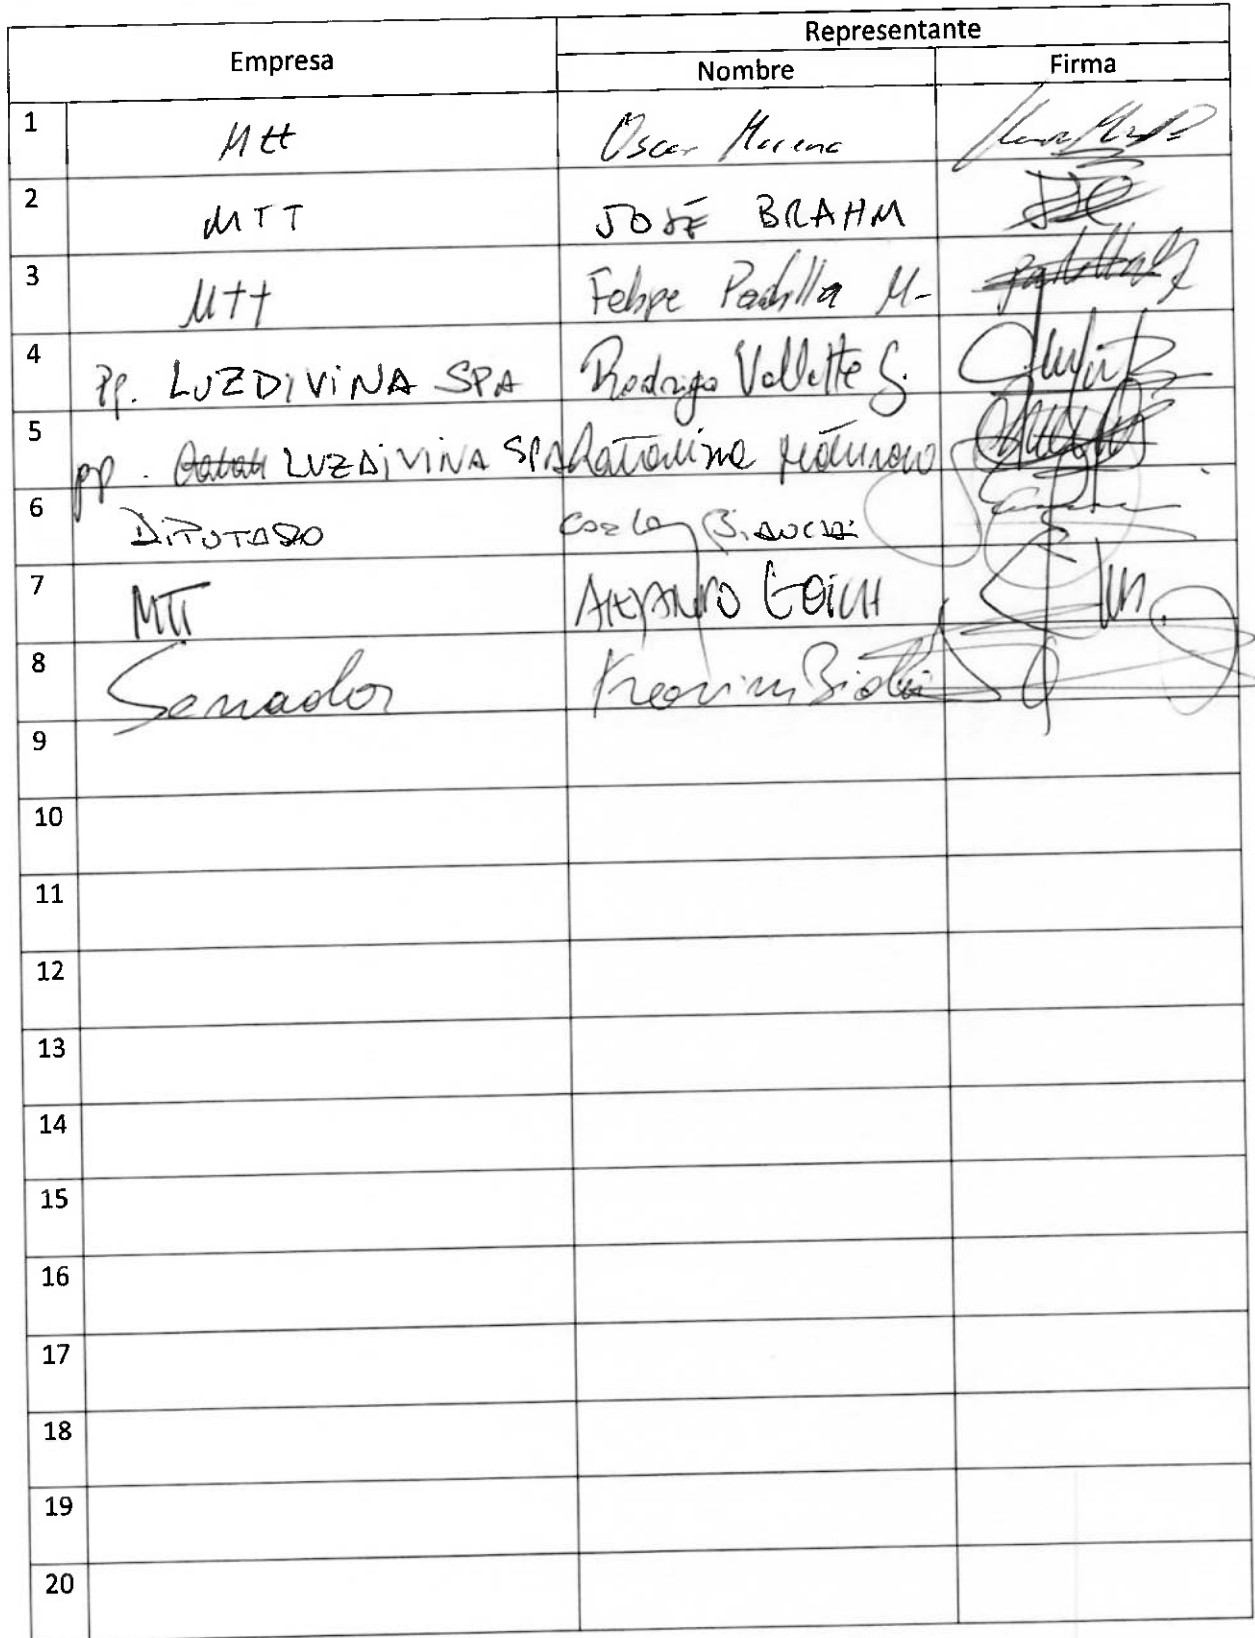 Empresa
Representante
Nombre
Firma
1 Mtt Oscar Moreno
2 MTT JOSÉ BRAHM
3 Mtt Felipe Padilla M-
4 Pp. LUZDIVINA SPA Rodrigo Vallette S.
5 pp. LUZDIVINA SPA
6 DIPUTADO Carlos BIANCHI
7 MTT
8 Senador Karim Bianchi
9
10
11
12
13
14
15
16
17
18
19
20